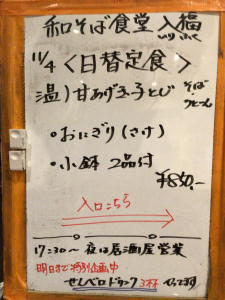 和そば食堂 入福
いりふく
11/4 <日替定食>
温) 甘あげ玉子とじ そば・うどん
・おにぎり(さけ)
・小鉢 2品付
¥850.-
入口こちら
17:30〜 夜は居酒屋営業
明日まで特別企画中
せんべロドリンク3杯 やってます